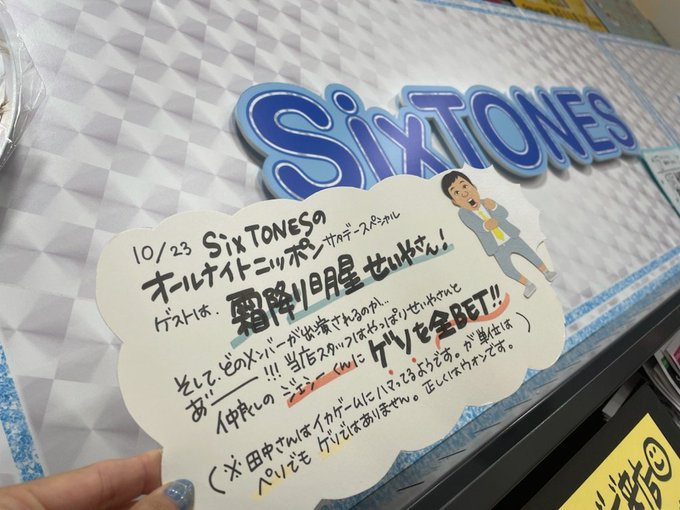 SixTONES
10/23 SixTONESの
オールナイトニッポン サタデースペシャル
ゲストは、霜降り明星せいやさん!
そして、どのメンバーが出演されるのか…
あ゛ーーー!!! 当店スタッフはやっぱりせいやさんと
仲良しのジェシーくんにゲソを全BET!!
(※田中さんはイカゲームにハマってるようです。が単位は
ペソでもゲソではありません。正しくはウォンです。)